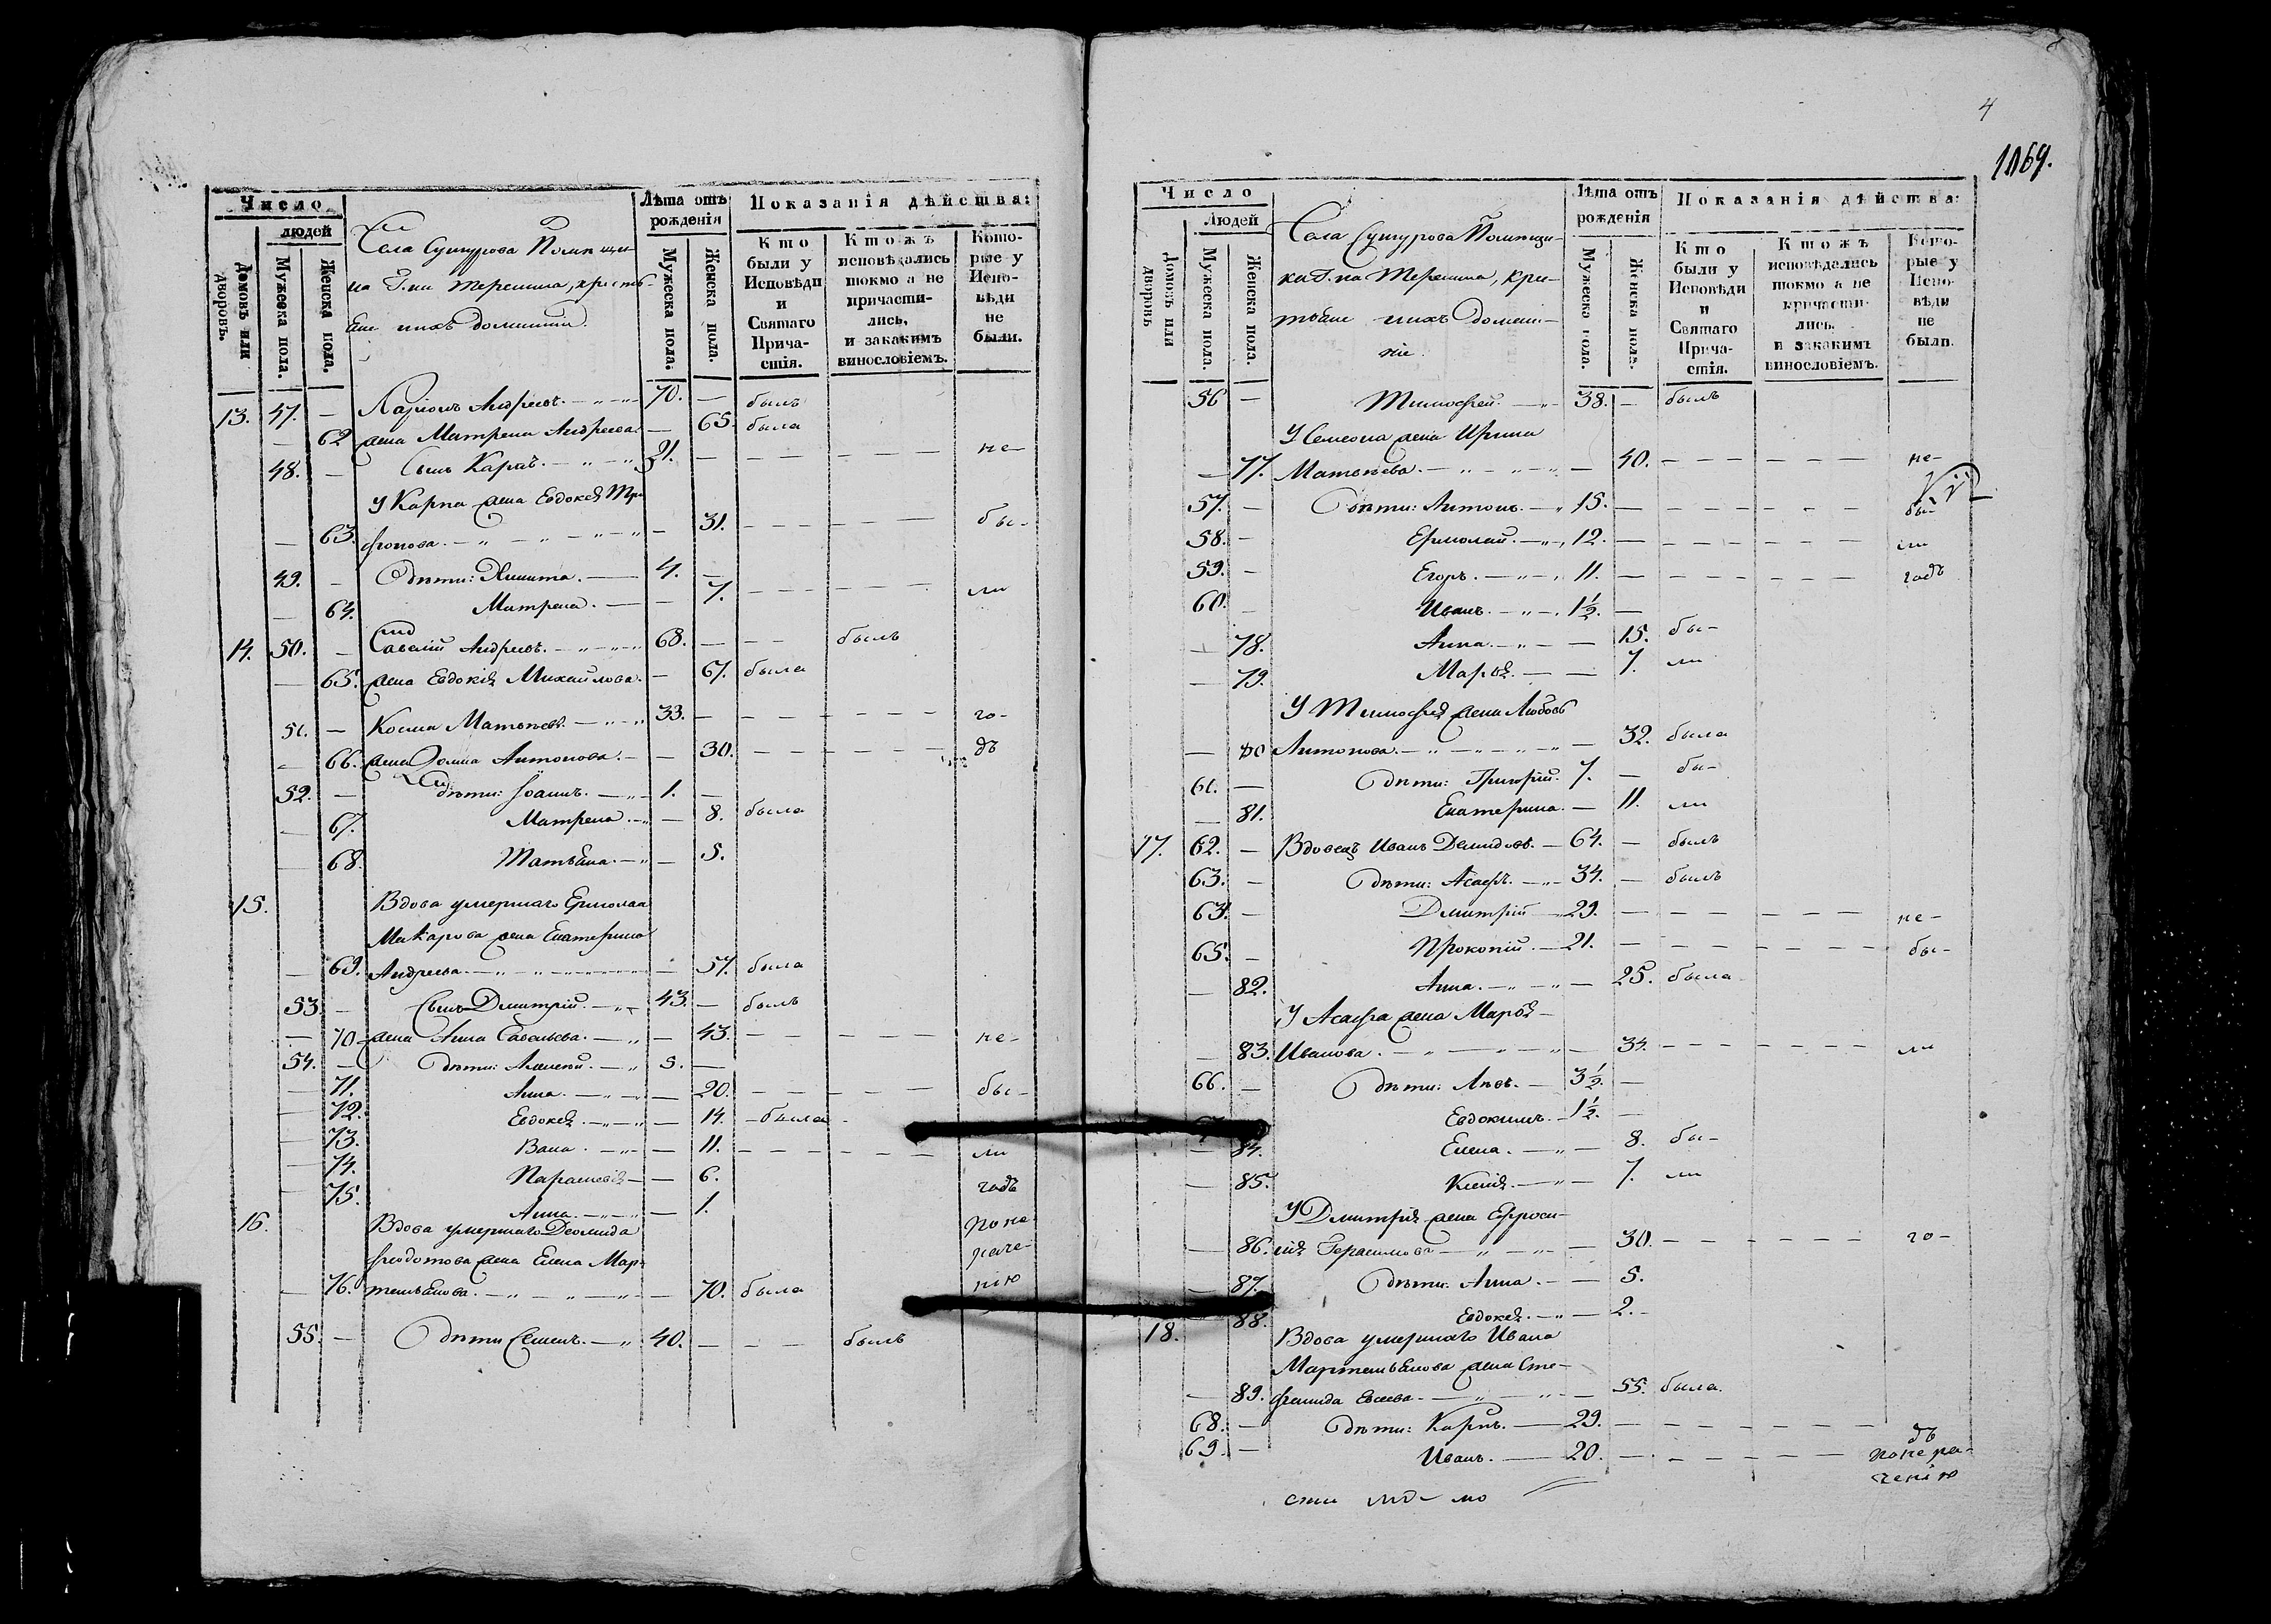 Число
людей
Домовъ или дворовъ.
Мужеска пола.
Женска пола.
Села Сушурова Помѣщи-
на Г-на Терешина, крестьь-
яне ихъ домашніи.
Лѣта отъ рожденія
Мужеска пола.
Женска пола.
Показанія дѣйства:
Кто были у Исповѣди и Святаго Прича-стія.
Ктожъ исповѣдались токмо а не причасти-лись, и закакимъ винословіемъ.
Кото-рые у Испо-вѣди не были.
13. 47. — Ларіонъ Андреевъ. — 70. — былъ
— 62 жена Матрена Андреева. — 65. была
48. — Сынъ Карпъ. — 31. — — — не-
У Карпа жена Евдокея Три-
— 63. фонова. — 31. — — бы-
49. — Дѣти: Никита. — 4. —
— 64. Матрена. — 7. — — ли
14. 50. — Савелій Андреевъ. — 68. — — былъ
— 65. жена Евдокія Михайлова. — 67. была
51. — Косма Матвѣевъ. — 33. — — — го-
— 66. жена Домна Антонова. — 30. — — дъ
52. — дѣти: Іоаннъ. — 1. —
— 67. Матрена. — 8. была
— 68. Татьяна. — 5.
15. Вдова умершаго Ермолая
Макарова жена Екатерина
— 69. Андреева. — 57. была
53. — Сынъ Дмитрій. — 43. — былъ
— 70 жена Анна Савельева. — 43. — — не-
54. — Дѣти: Алексѣй. — 5. —
— 71. Анна. — 20. — — бы-
— 72. Евдокея. — 14. — была
— 73. Васа. — 11. — — ли
— 74. Парасковія — 6. годъ
— 75. Анна. — 1.
16. Вдова умершаго Деомида по не
Феодотова жена Елена Мар- раче-
— 76. темьянова. — 70. была нію
55. — Дѣти Семенъ. — 40. — — былъ
4
1169.
Число
Людей
Домовъ или дворовъ
Мужеска пола.
Женска пола.
Села Сушурова Помѣщи-
ка Г-на Терешина, кре-
стьяне ихъ домаш-
ніе.
Лѣта отъ рожденія
Мужеска пола.
Женска пола.
Показанія дѣйства:
Кто были у Исповѣди и Святаго Прича-стія.
Ктожъ исповѣдались токмо а не причасти-лись. и закакимъ винословіемъ.
Кото-рые у Испо-вѣди не были.
56 — Тимофей. — 38. — былъ
У Семена жена Ирина
— 77. Матвѣева. — 40. — — не-
57. — Дѣти: Антонъ. — 15. — — бы-
58. — Ермолай. — 12. — — ли
59. — Егоръ. — 11. — — годъ
60. — Иванъ. — 1½. —
— 78. Анна. — 15. бы-
— 79. Марья. — 7. ли
У Тимофея жена Любовь
— 80 Антонова. — 32. была
61. — Дѣти: Григорій. 7. — бы-
— 81. Екатерина. — 11. ли
17. 62. — Вдовецъ Иванъ Демидовъ. — 64. — былъ
63. — Дѣти: Асафъ. — 34. — былъ
64 — Дмитрій — 29. — — не-
65. — Прокопій. — 21. — — бы-
— 82. Анна. — 25. была
У Асафа жена Марья
— 83. Иванова. — 34. — — ли
66. — Дѣти: Левъ. — 3½. —
67 Евдокимъ. — 1½. —
— 84. Елена. — 8. бы-
— 85. Ксенія. — 7. ли
У Дмитрія жена Евроси-
— 86. нія Герасимова — 30. — — го-
— 87. Дѣти: Анна. — 5.
— 88. Евдокея. — 2.
18. Вдова умершаго Ивана
Мартемьянова жена Сте-
— 89. фанида Евсеева. — 55. была.
68. — Дѣти: Карпъ. — 29. — — дъ
69. — Иванъ. — 20. — — по нера-
ченію